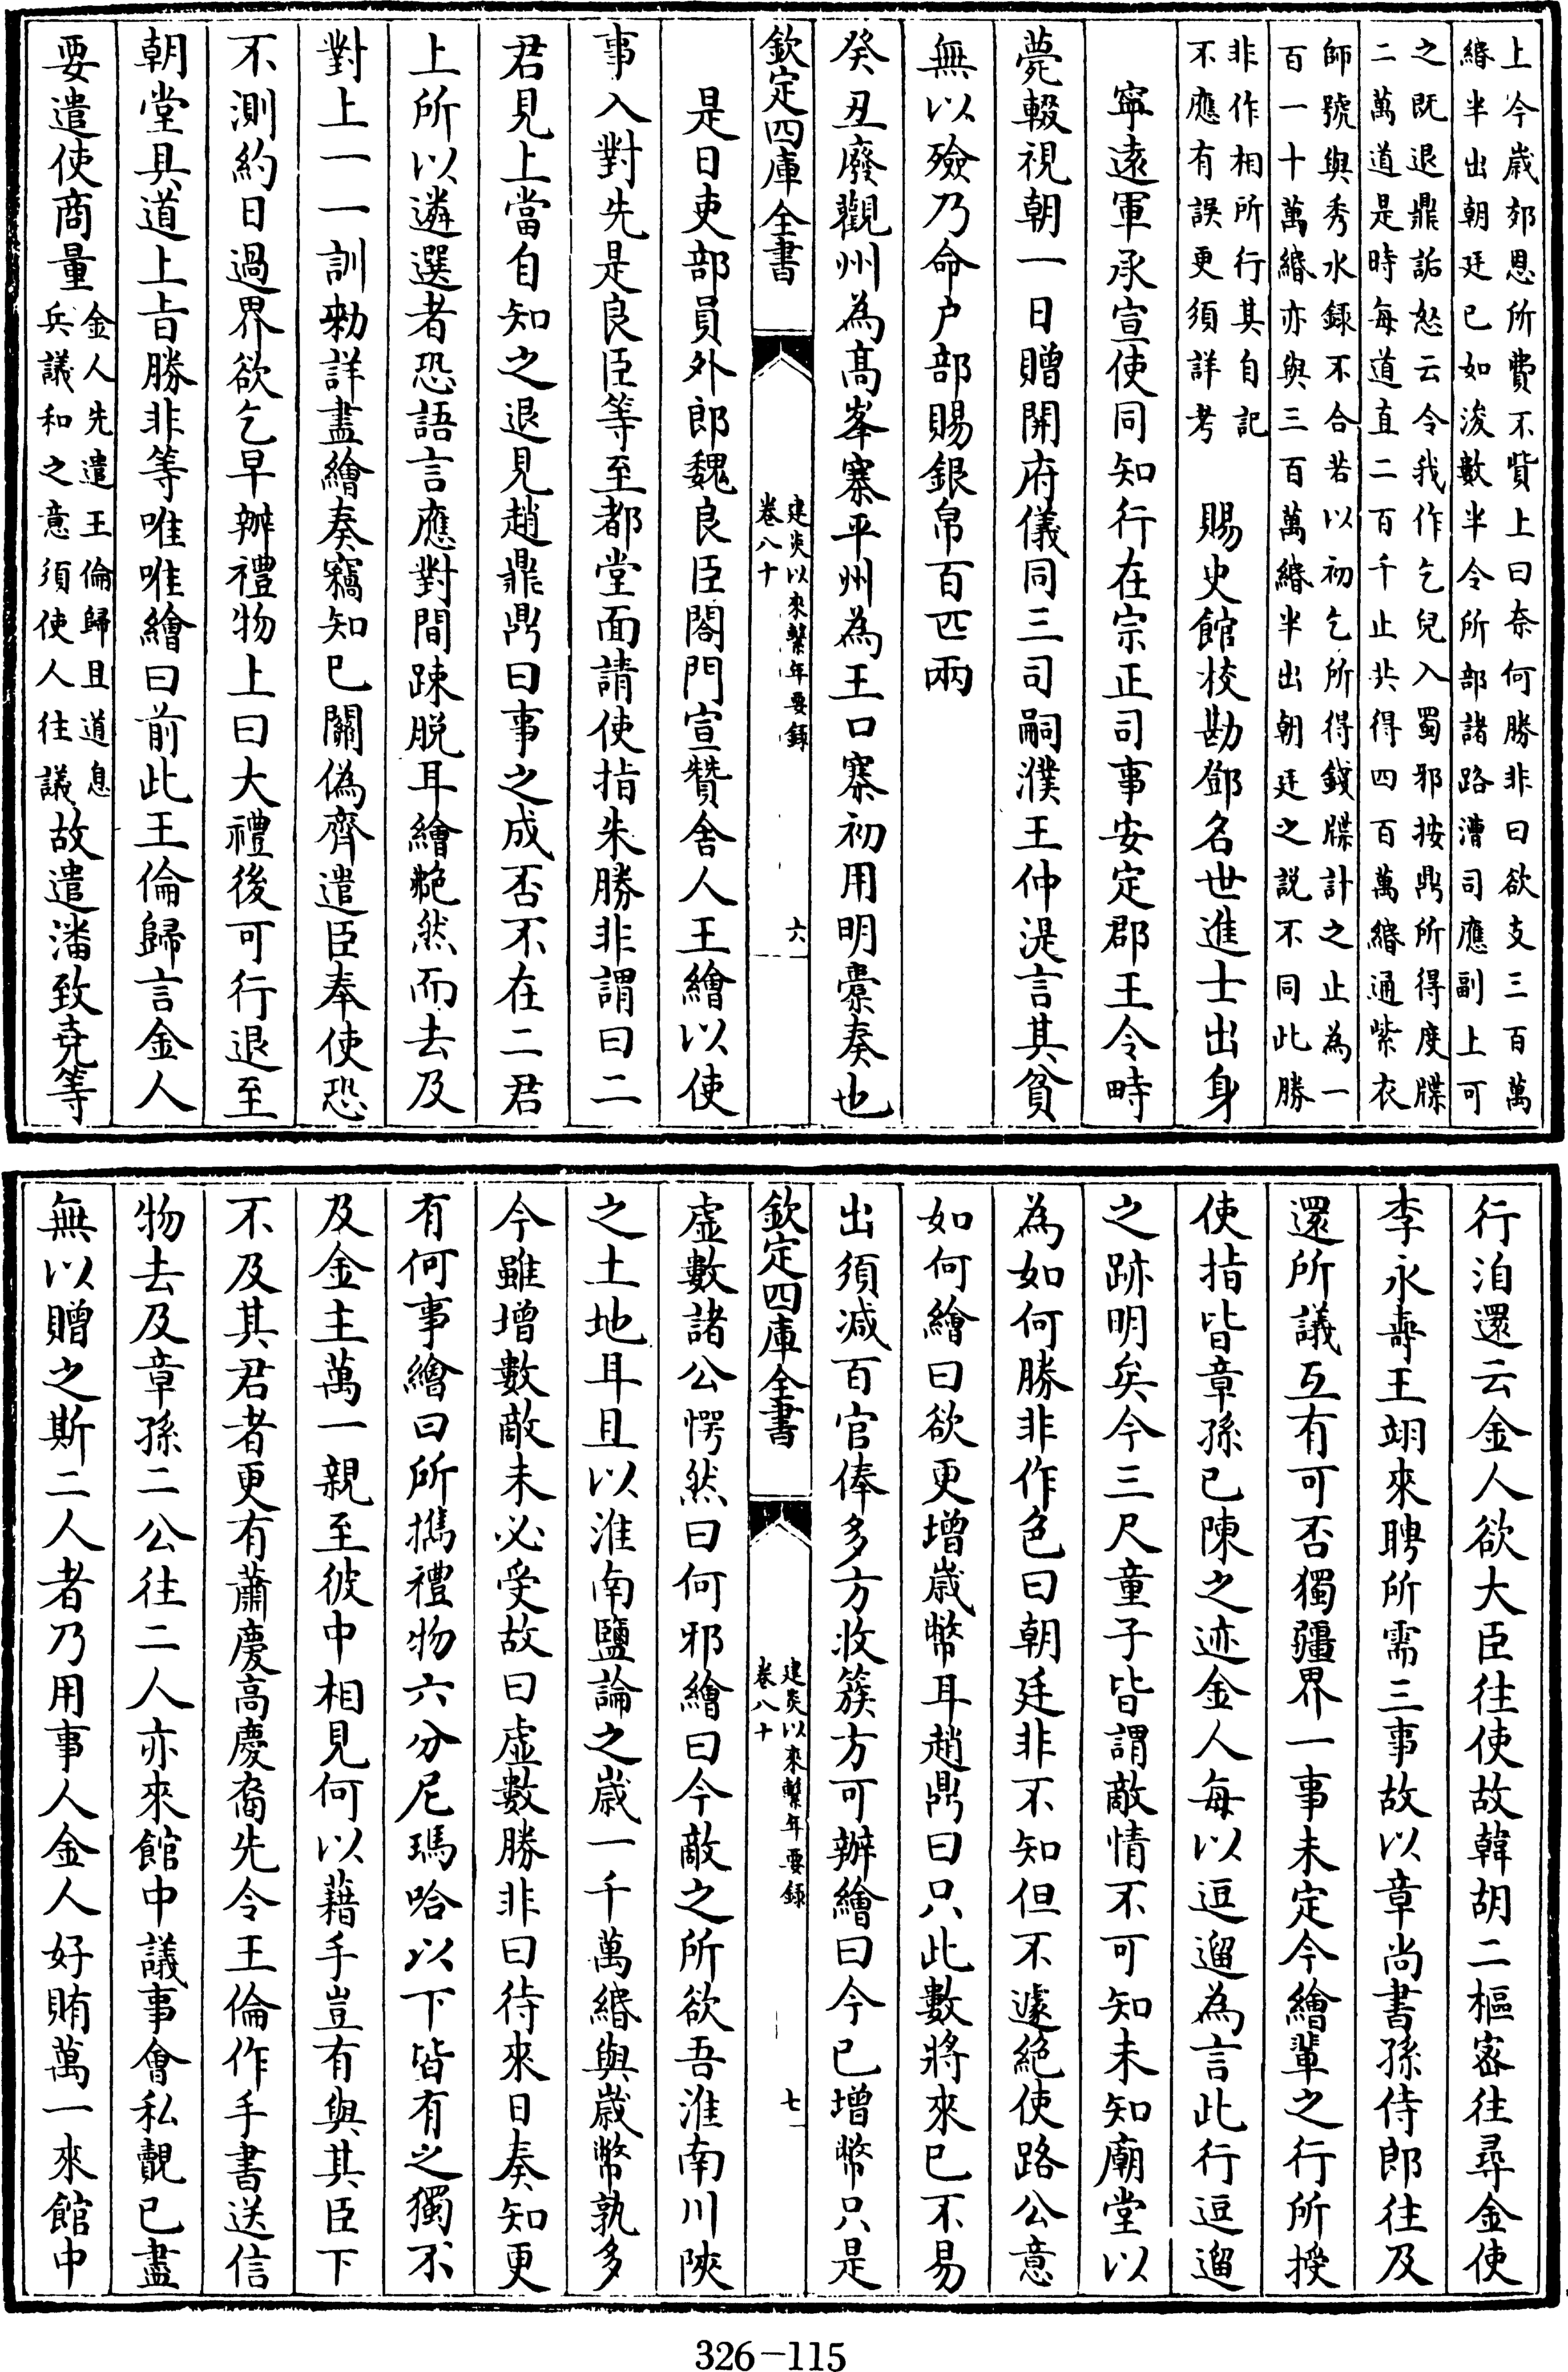 上今歳郊恩所費不貲上曰奈何勝非曰欲支三百萬
緡半出朝廷已如浚數半令所部諸路漕司應副上可
之既退鼎詬怒云令我作乞兒入蜀邪按鼎所得度牒
二萬道是時每道直二百千止共得四百萬緡通紫衣
師號與秀水録不合若以初乞所得錢牒計之止為一
百一十萬緡亦與三百萬緡半出朝廷之説不同此勝
非作相所行其自記
不應有誤更須詳考
賜史館校勘鄧名世進士出身
寧逺軍承宣使同知行在宗正司事安定郡王令畤
薨輟視朝一日贈開府儀同三司嗣濮王仲湜言其貧
無以殮乃命户部賜銀帛百匹兩
癸丑廢觀州為髙峯寨平州為王口寨初用明橐奏也
欽定四庫全書
建炎以來繫年要録
卷八十
六
是日吏部員外郎魏良臣閤門宣贊舍人王繪以使
事入對先是良臣等至都堂面請使指朱勝非謂曰二
君見上當自知之退見趙鼎鼎曰事之成否不在二君
上所以遴選者恐語言應對間踈脱耳繪艴然而去及
對上一一訓勑詳盡繪奏竊知已關偽齊遣臣奉使恐
不測約日過界欲乞早辦禮物上曰大禮後可行退至
朝堂具道上㫖勝非等唯唯繪曰前此王倫歸言金人
要遣使商量
金人先遣王倫歸且道息
兵議和之意須使人往議
故遣潘致堯等
行洎還云金人欲大臣往使故韓胡二樞宻往尋金使
李永壽王翊來聘所需三事故以章尚書孫侍郎往及
還所議互有可否獨疆界一事未定今繪輩之行所授
使指皆章孫已陳之迹金人每以逗遛為言此行逗遛
之跡明矣今三尺童子皆謂敵情不可知未知廟堂以
為如何勝非作色曰朝廷非不知但不遽絶使路公意
如何繪曰欲更增歳幣耳趙鼎曰只此數將來已不易
出須減百官俸多方收簇方可辦繪曰今已增幣只是
欽定四庫全書
建炎以來繫年要録
卷八十
七
虛數諸公愕然曰何邪繪曰今敵之所欲吾淮南川陜
之土地耳且以淮南鹽論之歳一千萬緡與歳幣孰多
今雖增數敵未必受故曰虛數勝非曰待來日奏知更
有何事繪曰所攜禮物六分尼瑪哈以下皆有之獨不
及金主萬一親至彼中相見何以藉手豈有與其臣下
不及其君者更有蕭慶高慶裔先令王倫作手書送信
物去及章孫二公往二人亦來館中議事會私覿已盡
無以贈之斯二人者乃用事人金人好賄萬一來館中
326-115